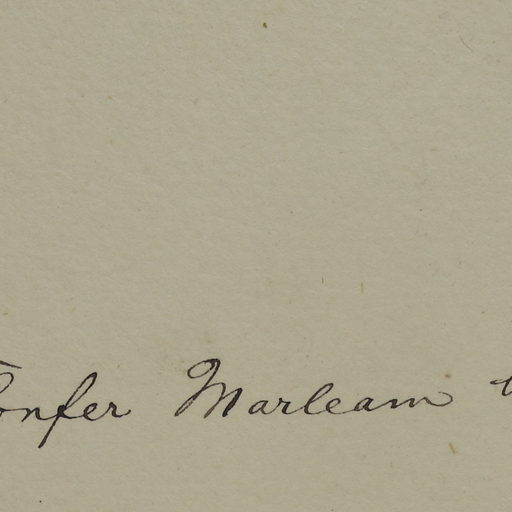 onfer Marleam